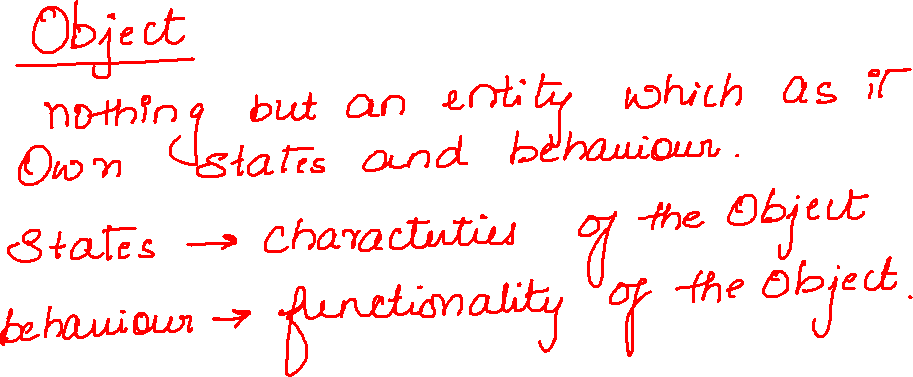 Object
nothing but an entity which as it
Own states and behaviour.
States → charactuties of the Object
behaviour → functionality of the Object.